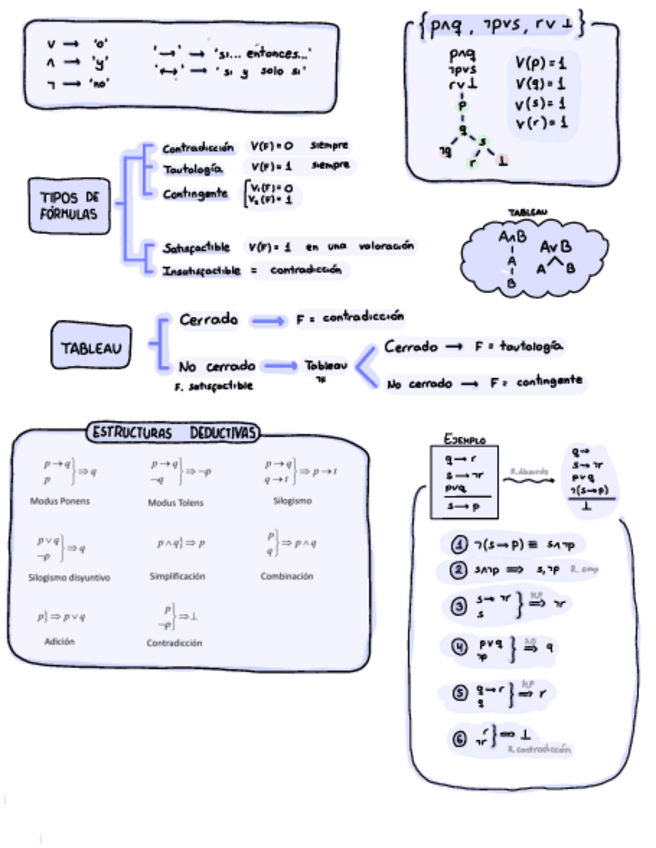 ∨ → 'o'
∧ → 'y'
¬ → 'no'
'→' → 'si... entonces...'
'↔' → 'si y solo si'
{p∧q, ¬p∨s, r∨⊥}
p∧q
¬p∨s
r∨⊥
p
q
¬q s
r ⊥
V(p) = 1
V(q) = 1
V(s) = 1
V(r) = 1
TIPOS DE
FÓRMULAS
Contradicción V(F) = 0 siempre
Tautología V(F) = 1 siempre
Contingente V₁(F) = 0
V₂(F) = 1
Satisfactible V(F) = 1 en una valoración
Insatisfactible = contradicción
TABLEAU
A∧B
A
B
A∨B
A B
TABLEAU
Cerrado → F = contradicción
No cerrado → Tableau
F. satisfactible ¬F
Cerrado → F = tautología
No cerrado → F = contingente
ESTRUCTURAS DEDUCTIVAS
p → q
p } ⇒ q
Modus Ponens
p → q
¬q } ⇒ ¬p
Modus Tolens
p → q
q → t } ⇒ p → t
Silogismo
p ∨ q
¬p } ⇒ q
Silogismo disyuntivo
p ∧ q} ⇒ p
Simplificación
p
q } ⇒ p ∧ q
Combinación
p} ⇒ p ∨ q
Adición
p
¬p } ⇒ ⊥
Contradicción
EJEMPLO
q → r
s → ¬r
p∨q
s → p
R. Absurdo
q →
s → ¬r
p∨q
¬(s→p)
⊥
① ¬(s→p) ≡ s∧¬p
② s∧¬p ⇒ s, ¬p R. simp
③ s → ¬r
s } ⇒ ¬r
M.P
④ p∨q
¬p } ⇒ q
S.D
⑤ q → r
q } ⇒ r
M.P
⑥ r
¬r } ⇒ ⊥
R. contradicción